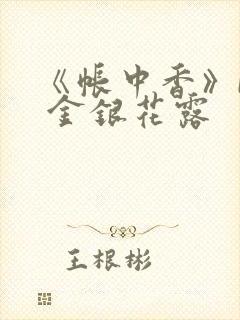 《帐中香》
金银花露
王根彬